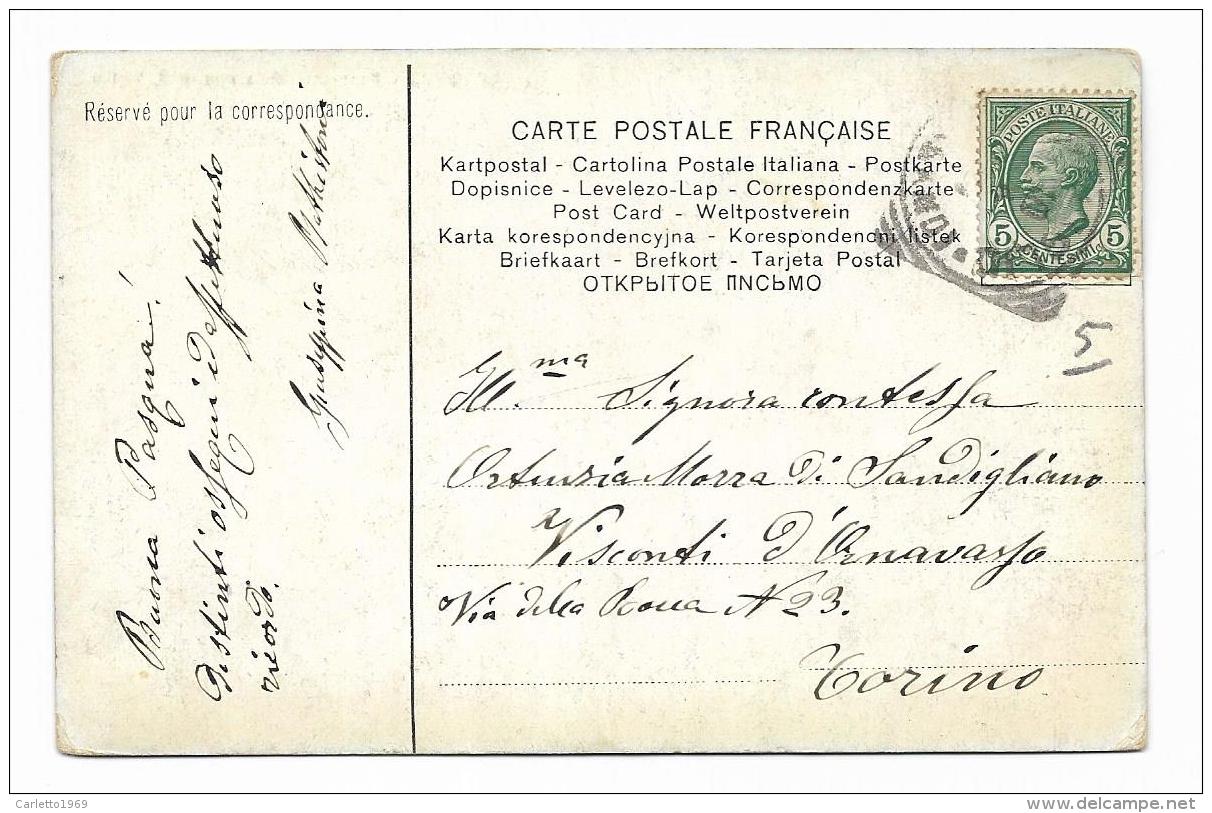 Réservé pour la correspondance.
Buona Pasqua!
Distinti ossequi ed affettuoso
ricordo.
Giuseppina
CARTE POSTALE FRANÇAISE
Kartpostal - Cartolina Postale Italiana - Postkarte
Dopisnice - Levelezo-Lap - Correspondenzkarte
Post Card - Weltpostverein
Karta korespondencyjna - Korespondencni listek
Briefkaart - Brefkort - Tarjeta Postal
ОТКРЫТОЕ ПИСЬМО
POSTE ITALIANE
5 CENTESIMI 5
5
Ill.ma Signora contessa
Ortensia Morra Di Sandigliano
Visconti D'Ornavasso
Via della Rocca N 23.
Torino
Carletto1969
www.delcampe.net